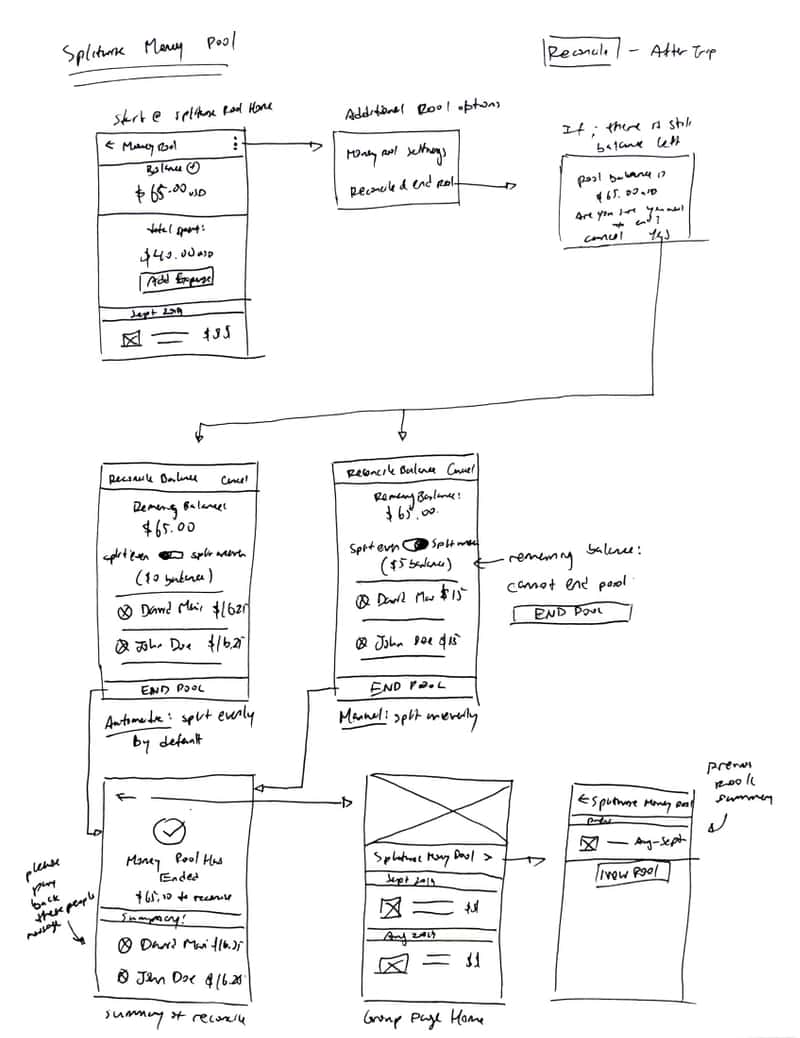 Splitwise Money Pool
Reconcile - After Trip
Start @ Splitwise Pool Home
← Money Pool
Balance +
$65.00 USD
total spent:
$40.00 USD
Add Expense
Sept 2019
$$$
Additional Pool options
Money Pool settings
Reconcile & end Pool
If; there is still
balance left
Pool balance is
$65.00 USD
Are you sure you want
to end?
cancel Yes
Reconcile Balance Cancel
Remaing Balance:
$65.00
split even split uneven
($0 balance)
David Mai $16.25
John Doe $16.25
END POOL
Automatic: split evenly
by default
Reconcile Balance Cancel
Remaing Balance:
$65.00.
Split even split uneven
($5 balance)
David Mai $15
John Doe $15
END POOL
Manual: split unevenly
remaining balance:
cannot end pool
END POOL
please
pay
back
these people
message
←
Money Pool Has
Ended
to reconcile
Summary:
David Mai $16.25
John Doe $16.25
Summary of reconcile
Splitwise Money Pool >
Sept 2019
$$
Aug 2019
$$
Group Page Home
← Splitwise Money Pool
Aug-Sept
New Pool
previous
Pool
summary